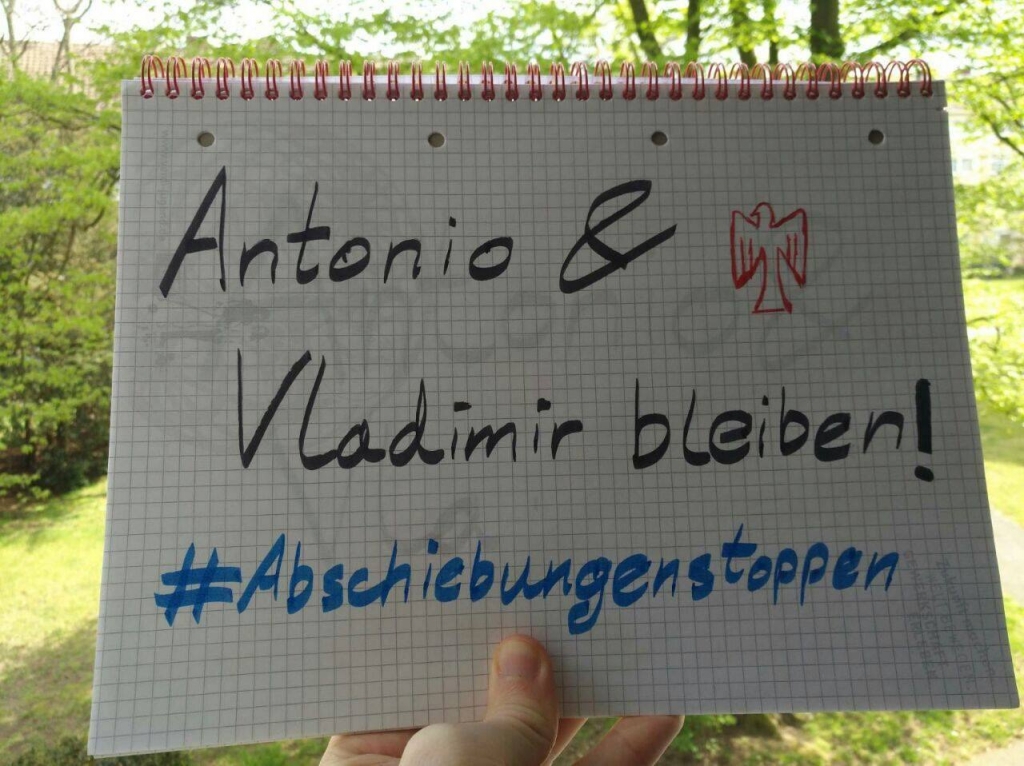 Antonio &
Vladimir bleiben!
#Abschiebungenstoppen